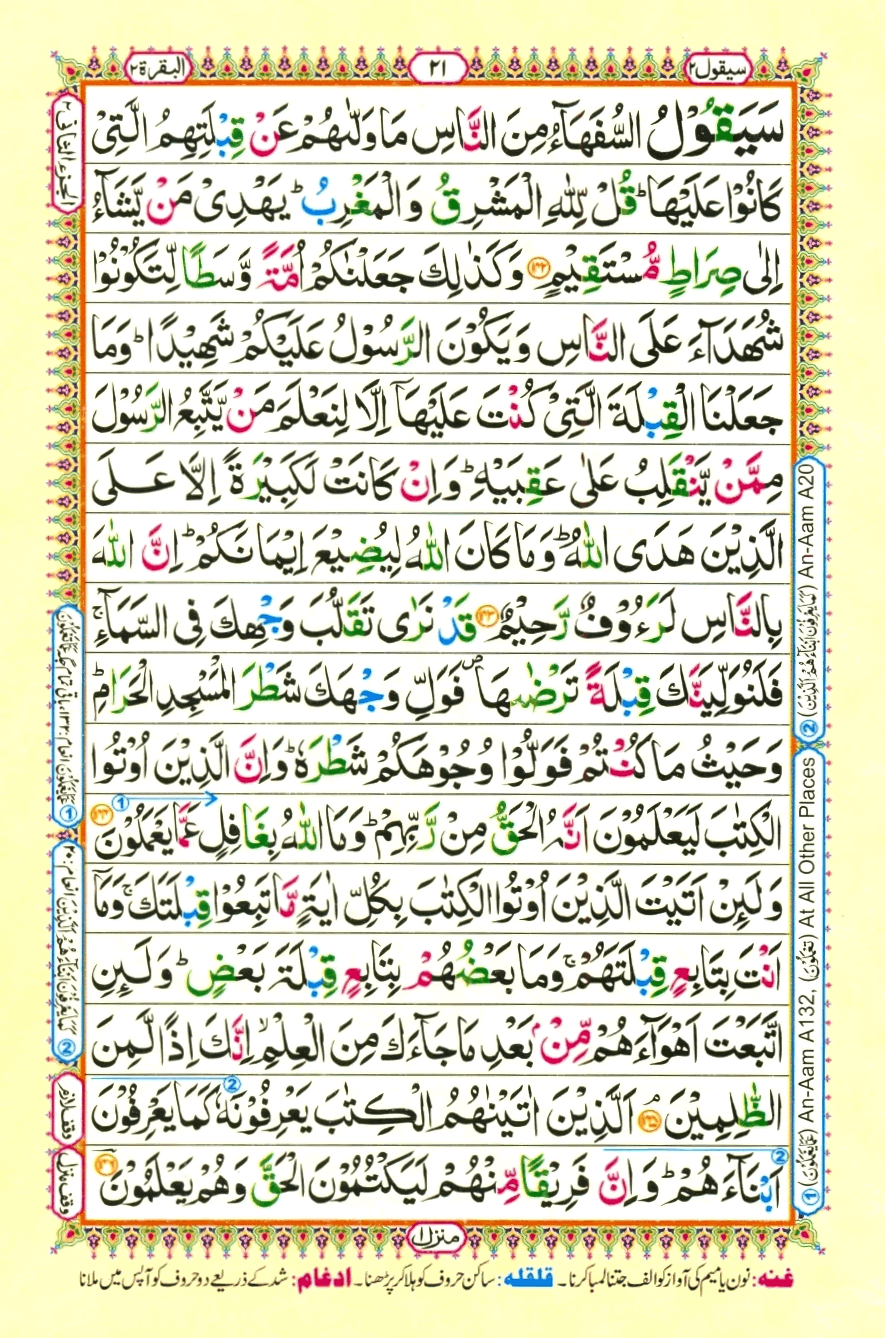 سیقول ٢
٢١
البقرة ٢
الجزء الثانی ٢
سَيَقُوْلُ السُّفَهَآءُ مِنَ النَّاسِ مَا وَلّٰىهُمْ عَنْ قِبْلَتِهِمُ الَّتِیْ
كَانُوْا عَلَيْهَا ؕ قُلْ لِّلّٰهِ الْمَشْرِقُ وَالْمَغْرِبُ ؕ يَهْدِیْ مَنْ يَّشَآءُ
اِلٰى صِرَاطٍ مُّسْتَقِيْمٍ ﴿١٤٢﴾ وَكَذٰلِكَ جَعَلْنٰكُمْ اُمَّةً وَّسَطًا لِّتَكُوْنُوْا
شُهَدَآءَ عَلَى النَّاسِ وَيَكُوْنَ الرَّسُوْلُ عَلَيْكُمْ شَهِيْدًا ؕ وَمَا
جَعَلْنَا الْقِبْلَةَ الَّتِیْ كُنْتَ عَلَيْهَآ اِلَّا لِنَعْلَمَ مَنْ يَّتَّبِعُ الرَّسُوْلَ
مِمَّنْ يَّنْقَلِبُ عَلٰى عَقِبَيْهِ ؕ وَاِنْ كَانَتْ لَكَبِيْرَةً اِلَّا عَلَى
الَّذِيْنَ هَدَى اللّٰهُ ؕ وَمَا كَانَ اللّٰهُ لِيُضِيْعَ اِيْمَانَكُمْ ؕ اِنَّ اللّٰهَ
بِالنَّاسِ لَرَءُوْفٌ رَّحِيْمٌ ﴿١٤٣﴾ قَدْ نَرٰى تَقَلُّبَ وَجْهِكَ فِی السَّمَآءِ ۚ
فَلَنُوَلِّيَنَّكَ قِبْلَةً تَرْضٰىهَا ۪ فَوَلِّ وَجْهَكَ شَطْرَ الْمَسْجِدِ الْحَرَامِ ؕ
وَحَيْثُ مَا كُنْتُمْ فَوَلُّوْا وُجُوْهَكُمْ شَطْرَهٗ ؕ وَاِنَّ الَّذِيْنَ اُوْتُوا
الْكِتٰبَ لَيَعْلَمُوْنَ اَنَّهُ الْحَقُّ مِنْ رَّبِّهِمْ ؕ وَمَا اللّٰهُ بِغَافِلٍ عَمَّا يَعْمَلُوْنَ ﴿١٤٤﴾
وَلَئِنْ اَتَيْتَ الَّذِيْنَ اُوْتُوا الْكِتٰبَ بِكُلِّ اٰيَةٍ مَّا تَبِعُوْا قِبْلَتَكَ ۚ وَمَآ
اَنْتَ بِتَابِعٍ قِبْلَتَهُمْ ۚ وَمَا بَعْضُهُمْ بِتَابِعٍ قِبْلَةَ بَعْضٍ ؕ وَلَئِنِ
اتَّبَعْتَ اَهْوَآءَهُمْ مِّنْۢ بَعْدِ مَا جَآءَكَ مِنَ الْعِلْمِ ۙ اِنَّكَ اِذًا لَّمِنَ
الظّٰلِمِيْنَ ﴿١٤٥﴾ۘ اَلَّذِيْنَ اٰتَيْنٰهُمُ الْكِتٰبَ يَعْرِفُوْنَهٗ كَمَا يَعْرِفُوْنَ
اَبْنَآءَهُمْ ؕ وَاِنَّ فَرِيْقًا مِّنْهُمْ لَيَكْتُمُوْنَ الْحَقَّ وَهُمْ يَعْلَمُوْنَ ﴿١٤٦﴾
① (عَمَّا يَعْمَلُوْنَ) An-Aam A132, (تَعْمَلُوْنَ) At All Other Places
② (كَمَا يَعْرِفُوْنَ اَبْنَآءَهُمْ اَلَّذِيْنَ) An-Aam A20
① عَمَّا يَعْمَلُوْنَ انعام: ١٣٢، باقی تمام جگہ عَمَّا تَعْمَلُوْنَ
② كَمَا يَعْرِفُوْنَ اَبْنَآءَهُمْ اَلَّذِيْنَ انعام: ٢٠
وقف لازم
وقف منزل
منزل ١
غنه: نون یا میم کی آواز کو الف جتنا لمبا کرنا۔ قلقله: ساکن حروف کو ہلا کر پڑھنا۔ ادغام: شد کے ذریعے دو حروف کو آپس میں ملانا